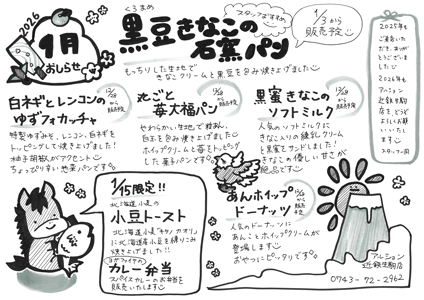 2026
1月
おしらせ
くろまめ
黒豆きなこの
石窯パン
スタッフおすすめ
1/3から
販売予定
もっちりした生地で
きなこクリームと黒豆を包み焼き上げました
白ネギとレンコンの
ゆずフォカッチャ
から
販売予定
特製ゆずみそ、レンコン、白ネギを
トッピングして焼き上げました!
柚子胡椒がアクセント
ちょっぴり辛い惣菜パンです。
丸ごと
苺大福パン
から
販売予定
やわらかい生地で粒あん、
白玉を包み焼き上げました。
ホイップクリームと苺をトッピング
した菓子パンです。
黒蜜きなこの
ソフトミルク
から
販売予定
人気のソフトミルクに
きなこ入りの練乳クリーム
と黒蜜をサンドしました!
きなこの優しい甘さが
絶品です
あんホイップ
ドーナッツ
から
販売予定
人気のドーナーツに
あんことホイップクリームが
登場します
おやつにピッタリです。
1/15限定!!
北海道小麦の
小豆トースト
北海道小麦「キタノカオリ」
に北海道産小豆を練りこみ
焼き上げました!!
カレー弁当
スパイスカレーのお弁当を
販売いたします
2025年も
ご来店いた
だき、ありが
とうございま
した
2026年も
アルション
近鉄生駒店
をどうぞ
よろしくお願
いいたし
ます
スタッフ一同
アルション
近鉄生駒店
0743-72-2962